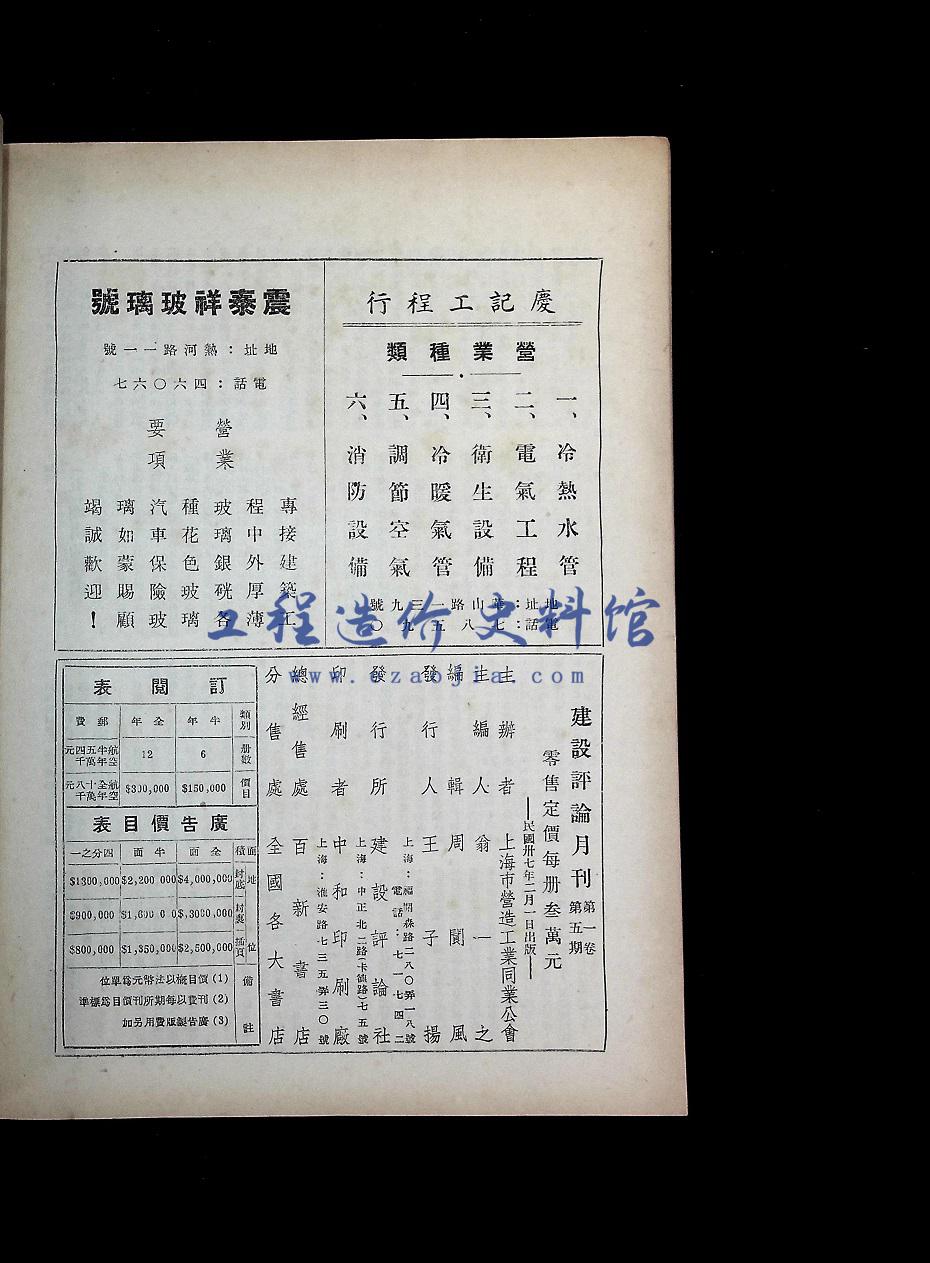 慶記工程行
營業種類
一、冷熱水管
二、電氣工程
三、衛生設備
四、冷暖氣管
五、調節空氣
六、消防設備
地址：華山路一三九號
電話：七八五九〇
震泰祥玻璃號
地址：熱河路一一號
電話：四六〇六七
營業
要項
專接建築工
程中外厚薄
玻璃銀硄各
種花色玻璃
汽車保險玻
璃如蒙賜顧
竭誠歡迎！
建設評論月刊 第一卷 第五期
零售定價每册叁萬元
——民國卅七年二月一日出版——
主辦者 上海市營造工業同業公會
主編人 翁一之
編輯 周闐風
發行人 王子揚
上海：福開森路二八〇弄一八號
電話：七一七四二
發行所 建設評論社
上海：中正北二路(卡德路)七五號
印刷者 中和印刷廠
上海：淮安路七三五弄三〇號
總經售處 百新書店
分售處 全國各大書店
訂閱表
類別 半年 全年 郵費
册數 6 12 航空半年五萬四千元
價目 $150,000 $300,000 航空全年十萬八千元
廣告價目表
面積 全面 半面 四分之一
地位
封底 $4,000,000 $2,200 000 $1300,000
封裏 $,3000,000 $1,600 0 0 $900,000
插頁 $2,500,000 $1,350,000 $800,000
備註
(1) 價目概以法幣元爲單位
(2) 刊費以每期所刊價目爲標準
(3) 廣告製版費用另加
工程造价史料馆
www.czaojia.com